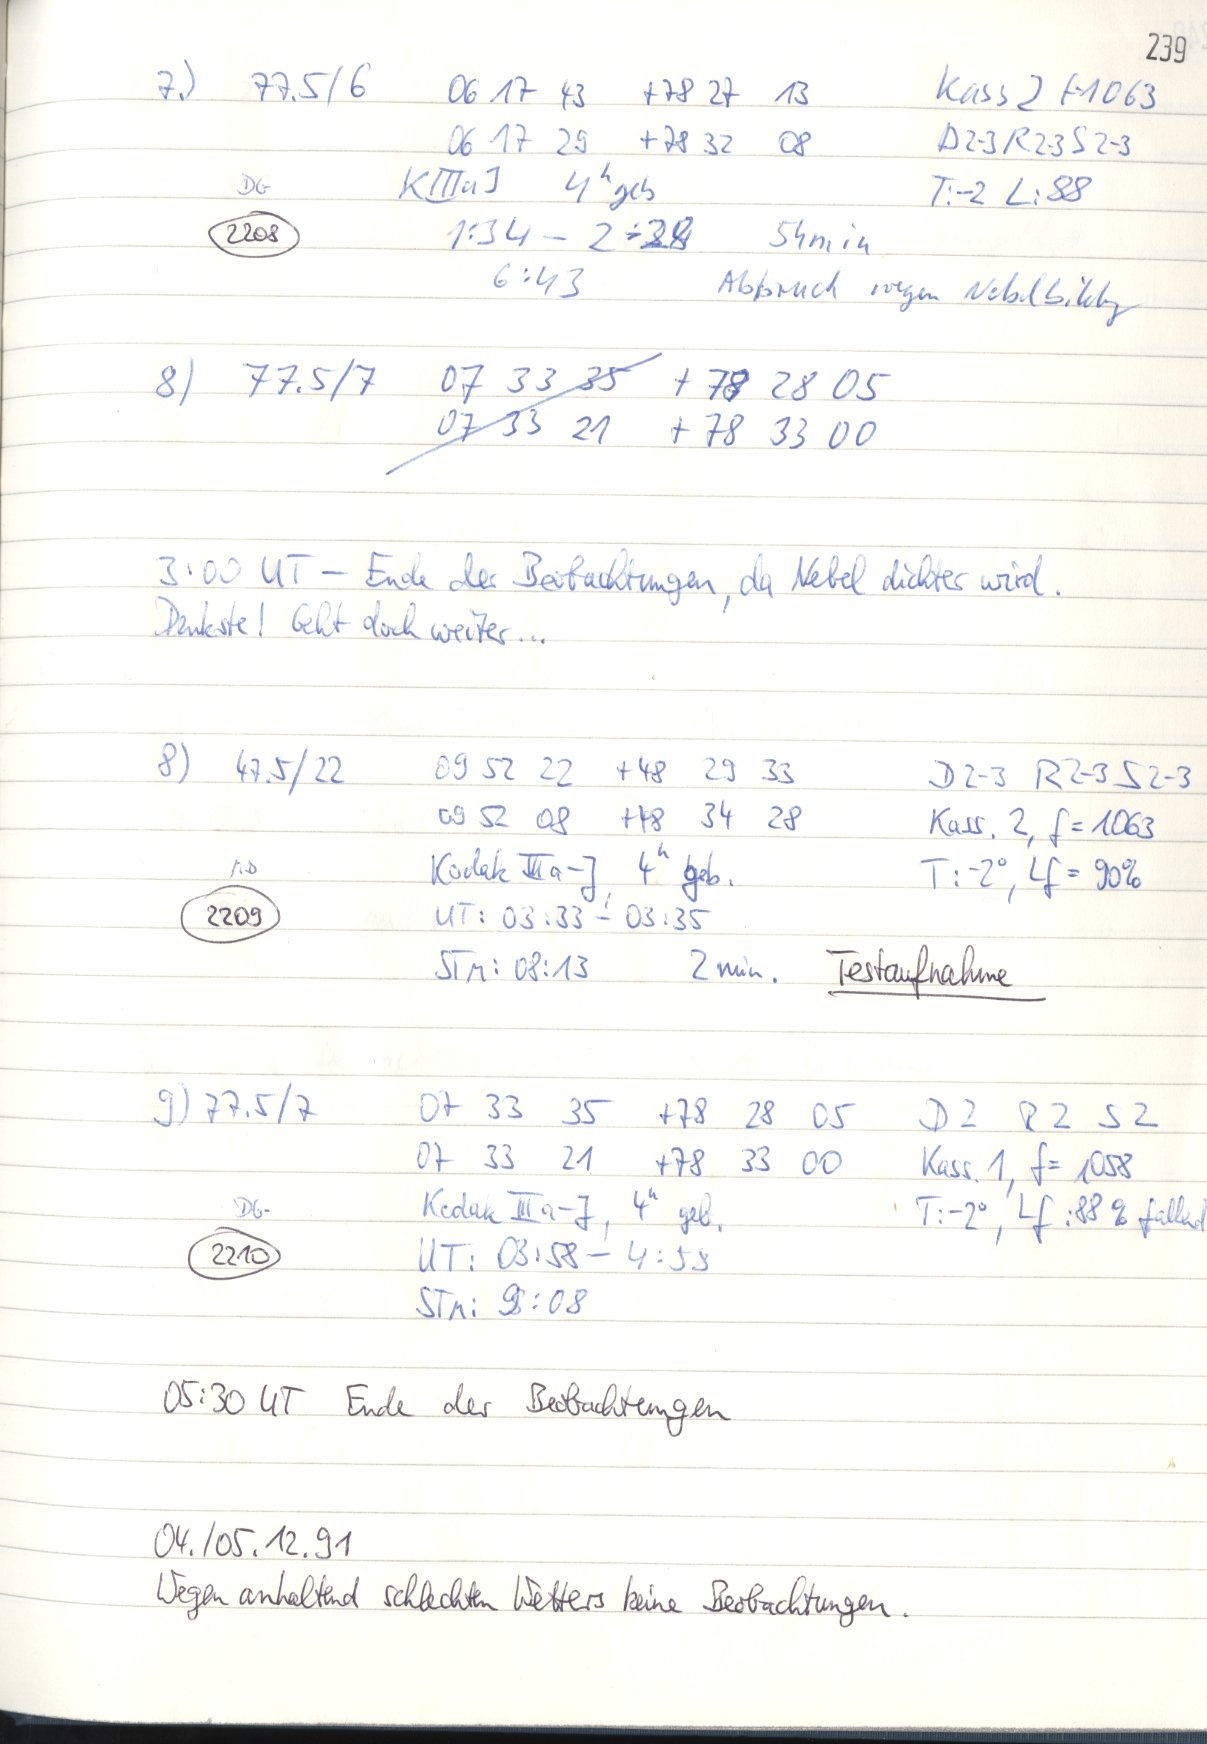 239
7.) 77.5/6 06 17 43 +78 27 13 Kass 2 f-1063
06 17 29 +78 32 08 D2-3 R2-3 S2-3
DG KIIIaJ 4h geb T:-2 L:88
2208 1:34 - 2:28 54min
6:43 Abbruch wegen Nebelbildg
8) 77.5/7 07 33 35 +78 28 05
07 33 21 +78 33 00
3:00 UT - Ende der Beobachtungen, da Nebel dichter wird.
Denkste! Geht doch weiter...
8) 47.5/22 09 52 22 +48 29 33 D2-3 R2-3 S2-3
09 52 08 +48 34 28 Kass. 2, f=1063
Kodak IIIa-J, 4h geb. T:-2°, Lf=90%
2209 UT: 03:33 - 03:35
STM: 08:13 2 min. Testaufnahme
9) 77.5/7 07 33 35 +78 28 05 D2 R2 S2
07 33 21 +78 33 00 Kass. 1, f=1058
DG Kodak IIIa-J, 4h geb. T:-2°, Lf:88% fallend
2210 UT: 03:58 - 4:58
STM: :08
05:30 UT Ende der Beobachtungen
04./05.12.91
Wegen anhaltend schlechten Wetters keine Beobachtungen.